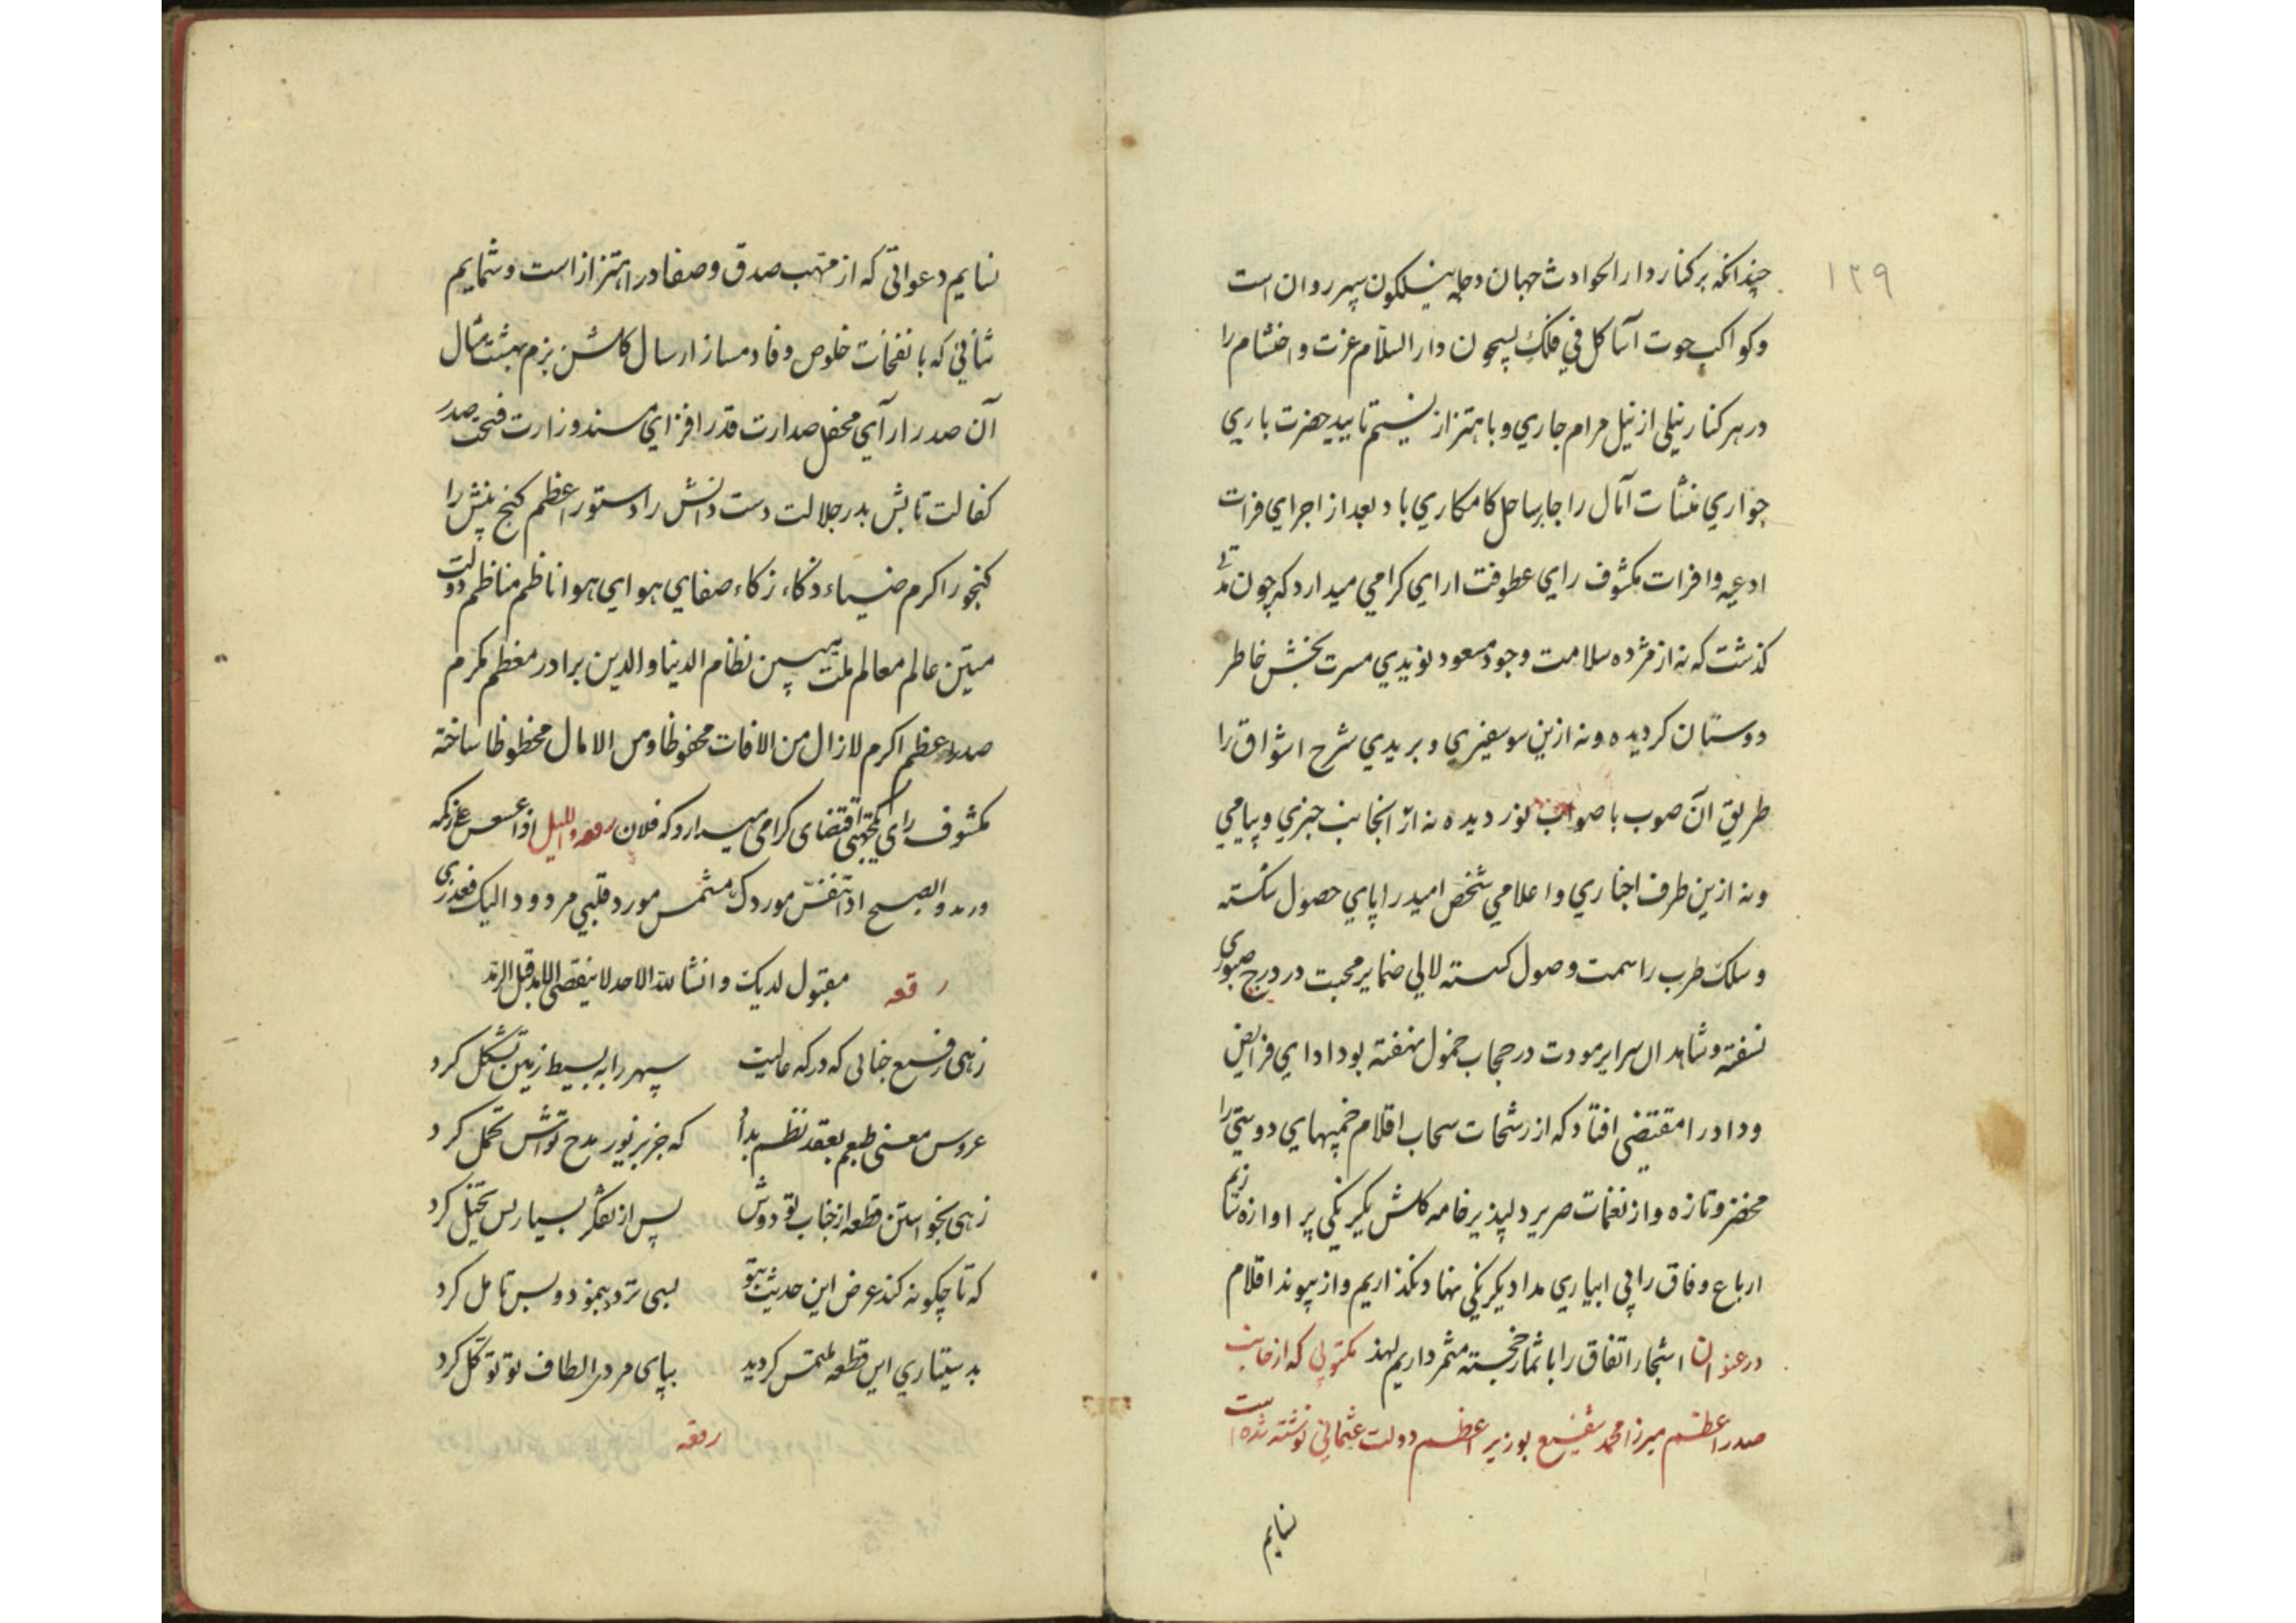 ۱۳۹
چندانکه بر کنار دار الحوادث جهان دجله نیلکون سپهر روان است
وکواکب حوت آسا کل في فلک یسبحون دار السلام عزت و احتشام را
در هر کنار نیلی از نیل مرام جاري و باهتزاز نسیم تایید حضرت باري
جواري منشآت آمال را جا بساحل کامکاري باد بعد از اجراي فرات
ادعیه وافرات مکشوف راي عطوفت اراي کرامي میدارد که چون مدتی
کذشت که نه از مژده سلامت وجود مسعود نویدي مسرت بخش خاطر
دوستان کردیده ونه ازین سو سفیري و بریدي شرح اشواق را
طریق آن صوب با صواب نوردیده نه از آنجانب خبري و پیامي
ونه ازین طرف اخباري و اعلامي شخص امید را پاي حصول شکسته
وسلک طرب را سمت وصول کسسته لالي ضمایر محبت در درج صبوری
نسفته و شاهدان سرایر مودت در حجاب خمول نهفته بود اداي فرایض
وداد را مقتضی افتاد که از رشحات سحاب اقلام خمیهاي دوستي را
مخضر و تازه و از نغمات صریر دلپذیر خامه کلشن یکرنکي پر اوازه سازیم
ارباع وفاق را بي ابیاري مداد یکرنکي ننهاد نکذاریم و از پیوند اقلام
اشجار اتفاق را با ثمار خجسته مثمر داریم لهذ در عنوان مکتوبي که از جانب
صدر اعظم میرزا محمد شفیع بوزیر اعظم دولت عثماني نوشته شده است
نسایم
نسایم دعواتي که از مهب صدق و صفا در اهتزاز است و شمایم
ثنائي که با نفحات خلوص و فا دمساز ارسال کلشن بزم بهشت مثال
آن صدر اراي محفل صدارت قدر افزاي مسند وزارت فتحت صدر
کفالت تابش بدر جلالت دست دانش را دستور اعظم کنج بینش را
کنجور اکرم ضیاء ذکاء زکاء صفاي هواي هوا ناظم مناظم دولت
متین عالم معالم ملت مبین نظام الدنیا والدین برادر معظم مکرم
صدر اعظم اکرم لازال من الافات محفوظا ومن الامال محظوظا ساخته
مکشوف رای یکجهتی اقتضای کرامی میدارد که فلان رقعه واللیل اذا عسعس
والصبح اذا تنفس موردک مشمس مورد قلبي مردود الیک فعذری
رقعه مقبول لدیک و انشا الله الاحد لا ینقضی الابد قبل الرد
زهی رفیع جنابی که درکه عالیت سپهر را به بسیط زمین تشکل کرد
عروس معنی طبعم بعقد نظم بدأ که جز بزیور مدح تواش تحمل کرد
زهی بخواستن قطعه از جناب تو دوش پس از تفکر بسیار بس تخیل کرد
که تا چکونه کند عرض این حدیث بتو بسی تردد بنمود و بس تامل کرد
بدستیاري این قطعه ملتمس کردید بپای مردی الطاف تو توکل کرد
رقعه